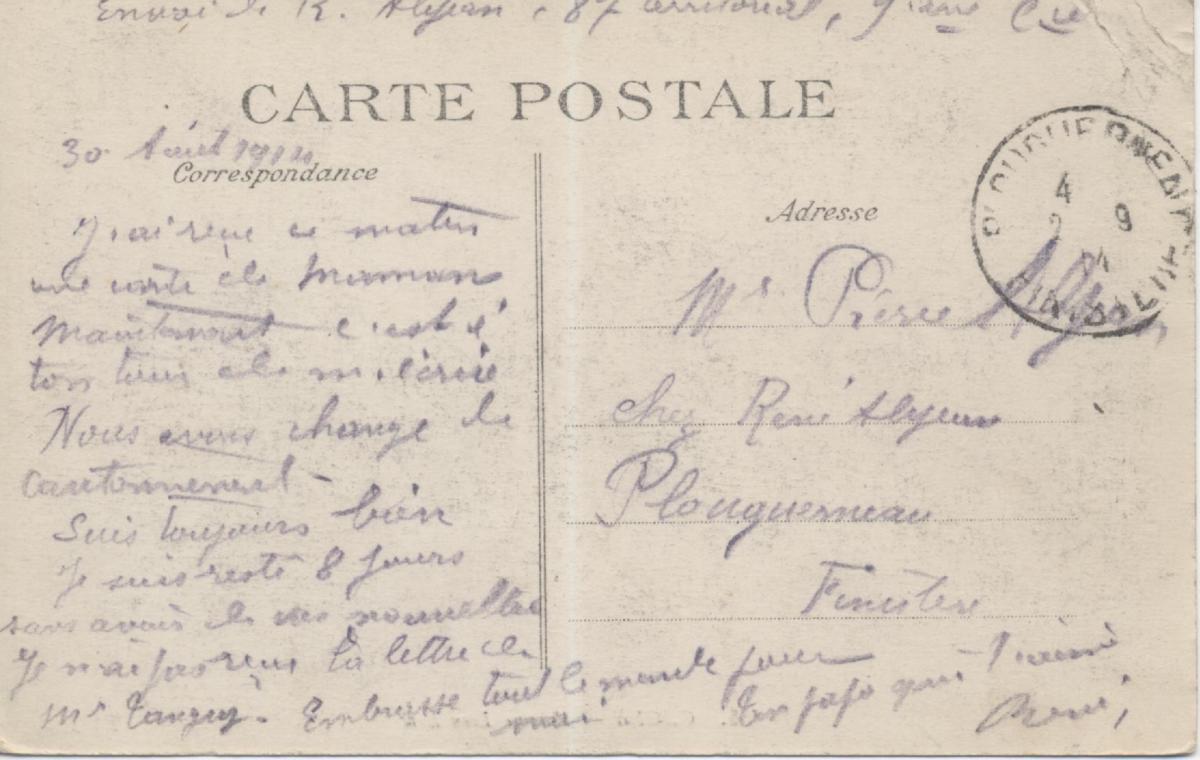 Envoi de R. Alyean, 87 territorial, 9 ième Cie
CARTE POSTALE
30 Août 1914
Correspondance
J'ai reçu ce matin
une carte de Maman
Maintenant c'est à
ton tour de m'écrire
Nous avons changé de
cantonnement
Suis toujours bien
Je suis resté 8 jours
sans avoir de vos nouvelles
Je n'ai pas reçu ta lettre de
Mr Tanguy. Embrasse tout le monde pour
moi Ton papa qui t'aime
René
Adresse
Mr Pierre
chez René Alyean
Plouguerneau
Finistère
PLOUGUERNEAU
4 9
14
FINISTERE